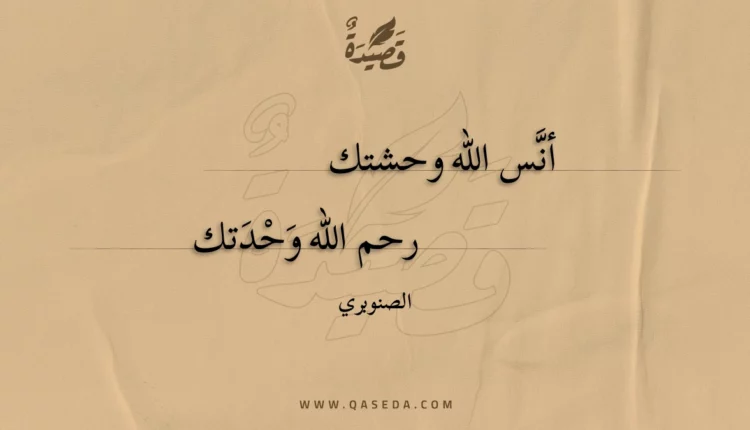 قَصِيدَةٌ
أنَّس الله وحشتك
رحم الله وَحْدَتك
الصنوبري
WWW.QASEDA.COM